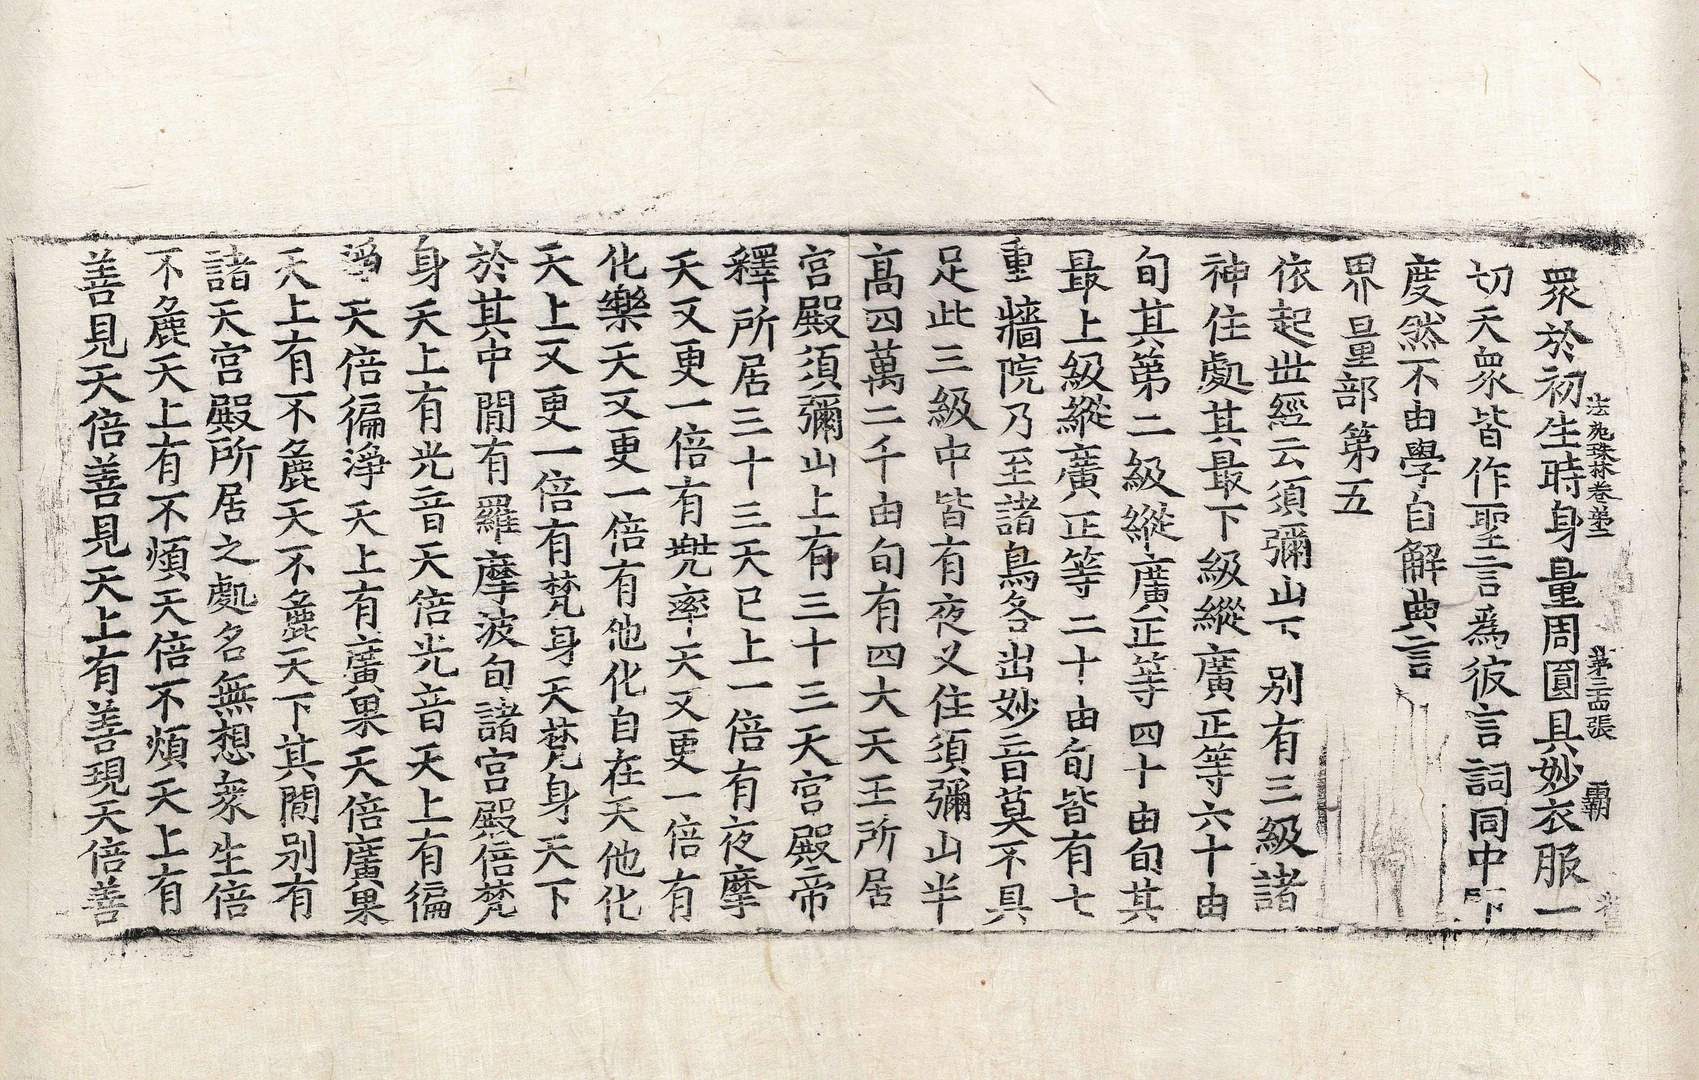 法苑珠林卷第三　第三十四張　覇
眾於初生時身量周圓具妙衣服一
切天眾皆作聖言為彼言詞同中印
度然不由學自解典言
界量部第五
依起世經云須彌山下別有三級諸
神住處其最下級縱廣正等六十由
旬其第二級縱廣正等四十由旬其
最上級縱廣正等二十由旬皆有七
重牆院乃至諸鳥各出妙音莫不具
足此三級中皆有夜叉住須彌山半
高四萬二千由旬有四大天王所居
宮殿須彌山上有三十三天宮殿帝
釋所居三十三天已上一倍有夜摩
天又更一倍有兠率天又更一倍有
化樂天又更一倍有他化自在天他化
天上又更一倍有梵身天梵身天下
於其中間有羅摩波旬諸宮殿倍梵
身天上有光音天倍光音天上有徧
淨天倍徧淨天上有廣果天倍廣果
天上有不麁天不麁天下其間別有
諸天宮殿所居之處名無想眾生倍
不麁天上有不煩天倍不煩天上有
善見天倍善見天上有善現天倍善